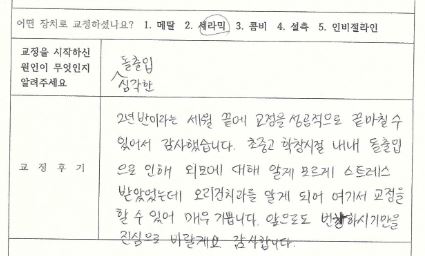 어떤 장치로 교정하셨나요? 1. 메탈 2. 세라믹 3. 콤비 4. 설측 5. 인비절라인
교정을 시작하신
원인이 무엇인지
알려주세요
돌출입
심각한
교정후기
2년반이라는 세월 끝에 교정을 성공적으로 끝마칠 수
있어서 감사했습니다. 초중고 학창시절 내내 돌출입
으로 인해 외모에 대해 알게 모르게 스트레스
받았었는데 오리건치과를 알게 되어 여기서 교정을
할 수 있어 매우 기쁩니다. 앞으로도 번창하시기만을
진심으로 바랄게요 감사합니다.